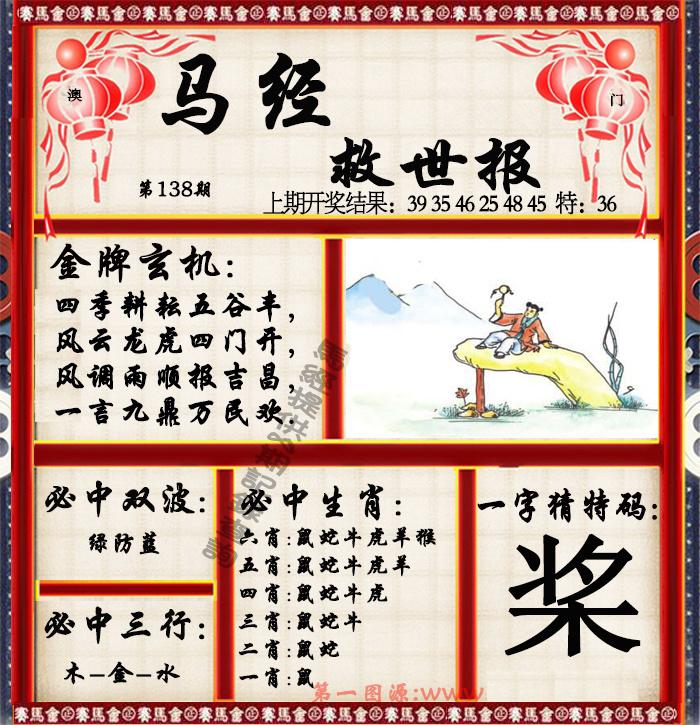 金馬會賽金馬會賽金馬會賽金馬會賽金馬會賽金馬會賽
澳
门
马经
救世报
第138期
上期开奖结果：39 35 46 25 48 45 特：36
金牌玄机：
四季耕耘五谷丰，
风云龙虎四门开，
风调雨顺报吉昌，
一言九鼎万民欢.
必中双波：
绿防蓝
必中三行：
木–金–水
必中生肖：
六肖：鼠蛇牛虎羊猴
五肖：鼠蛇牛虎羊
四肖：鼠蛇牛虎
三肖：鼠蛇牛
二肖：鼠蛇
一肖：鼠
一字猜特码：
桨
第一图源:www